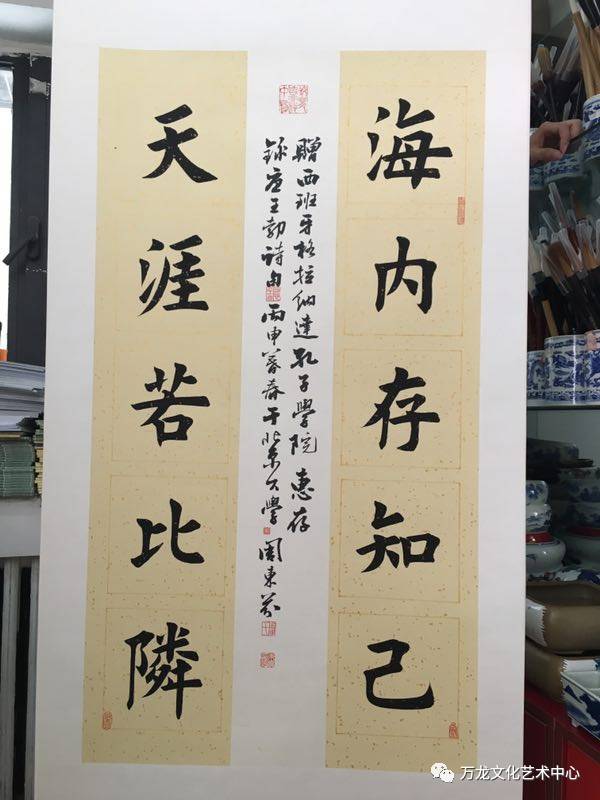 海内存知己
贈西班牙格拉納達孔子學院 惠存
錄唐王勃詩句 丙申暮春于北京大學 周東芬
天涯若比隣
万龙文化艺术中心